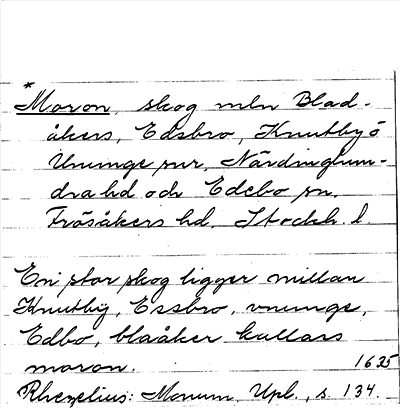 *Moron, skog mln Blad-
åkers, Edsbro, Knutby o
Ununge snr, Närdinghun-
dra hd och Edebo sn.
Frösåkers hd, Stockh. l.
En stor skog ligger millan
Knutbÿ, Essbro, vnunge,
Edbo, blaåker kallass
moron. 1635
Rhezelius: Monum. Upl., s. 134.